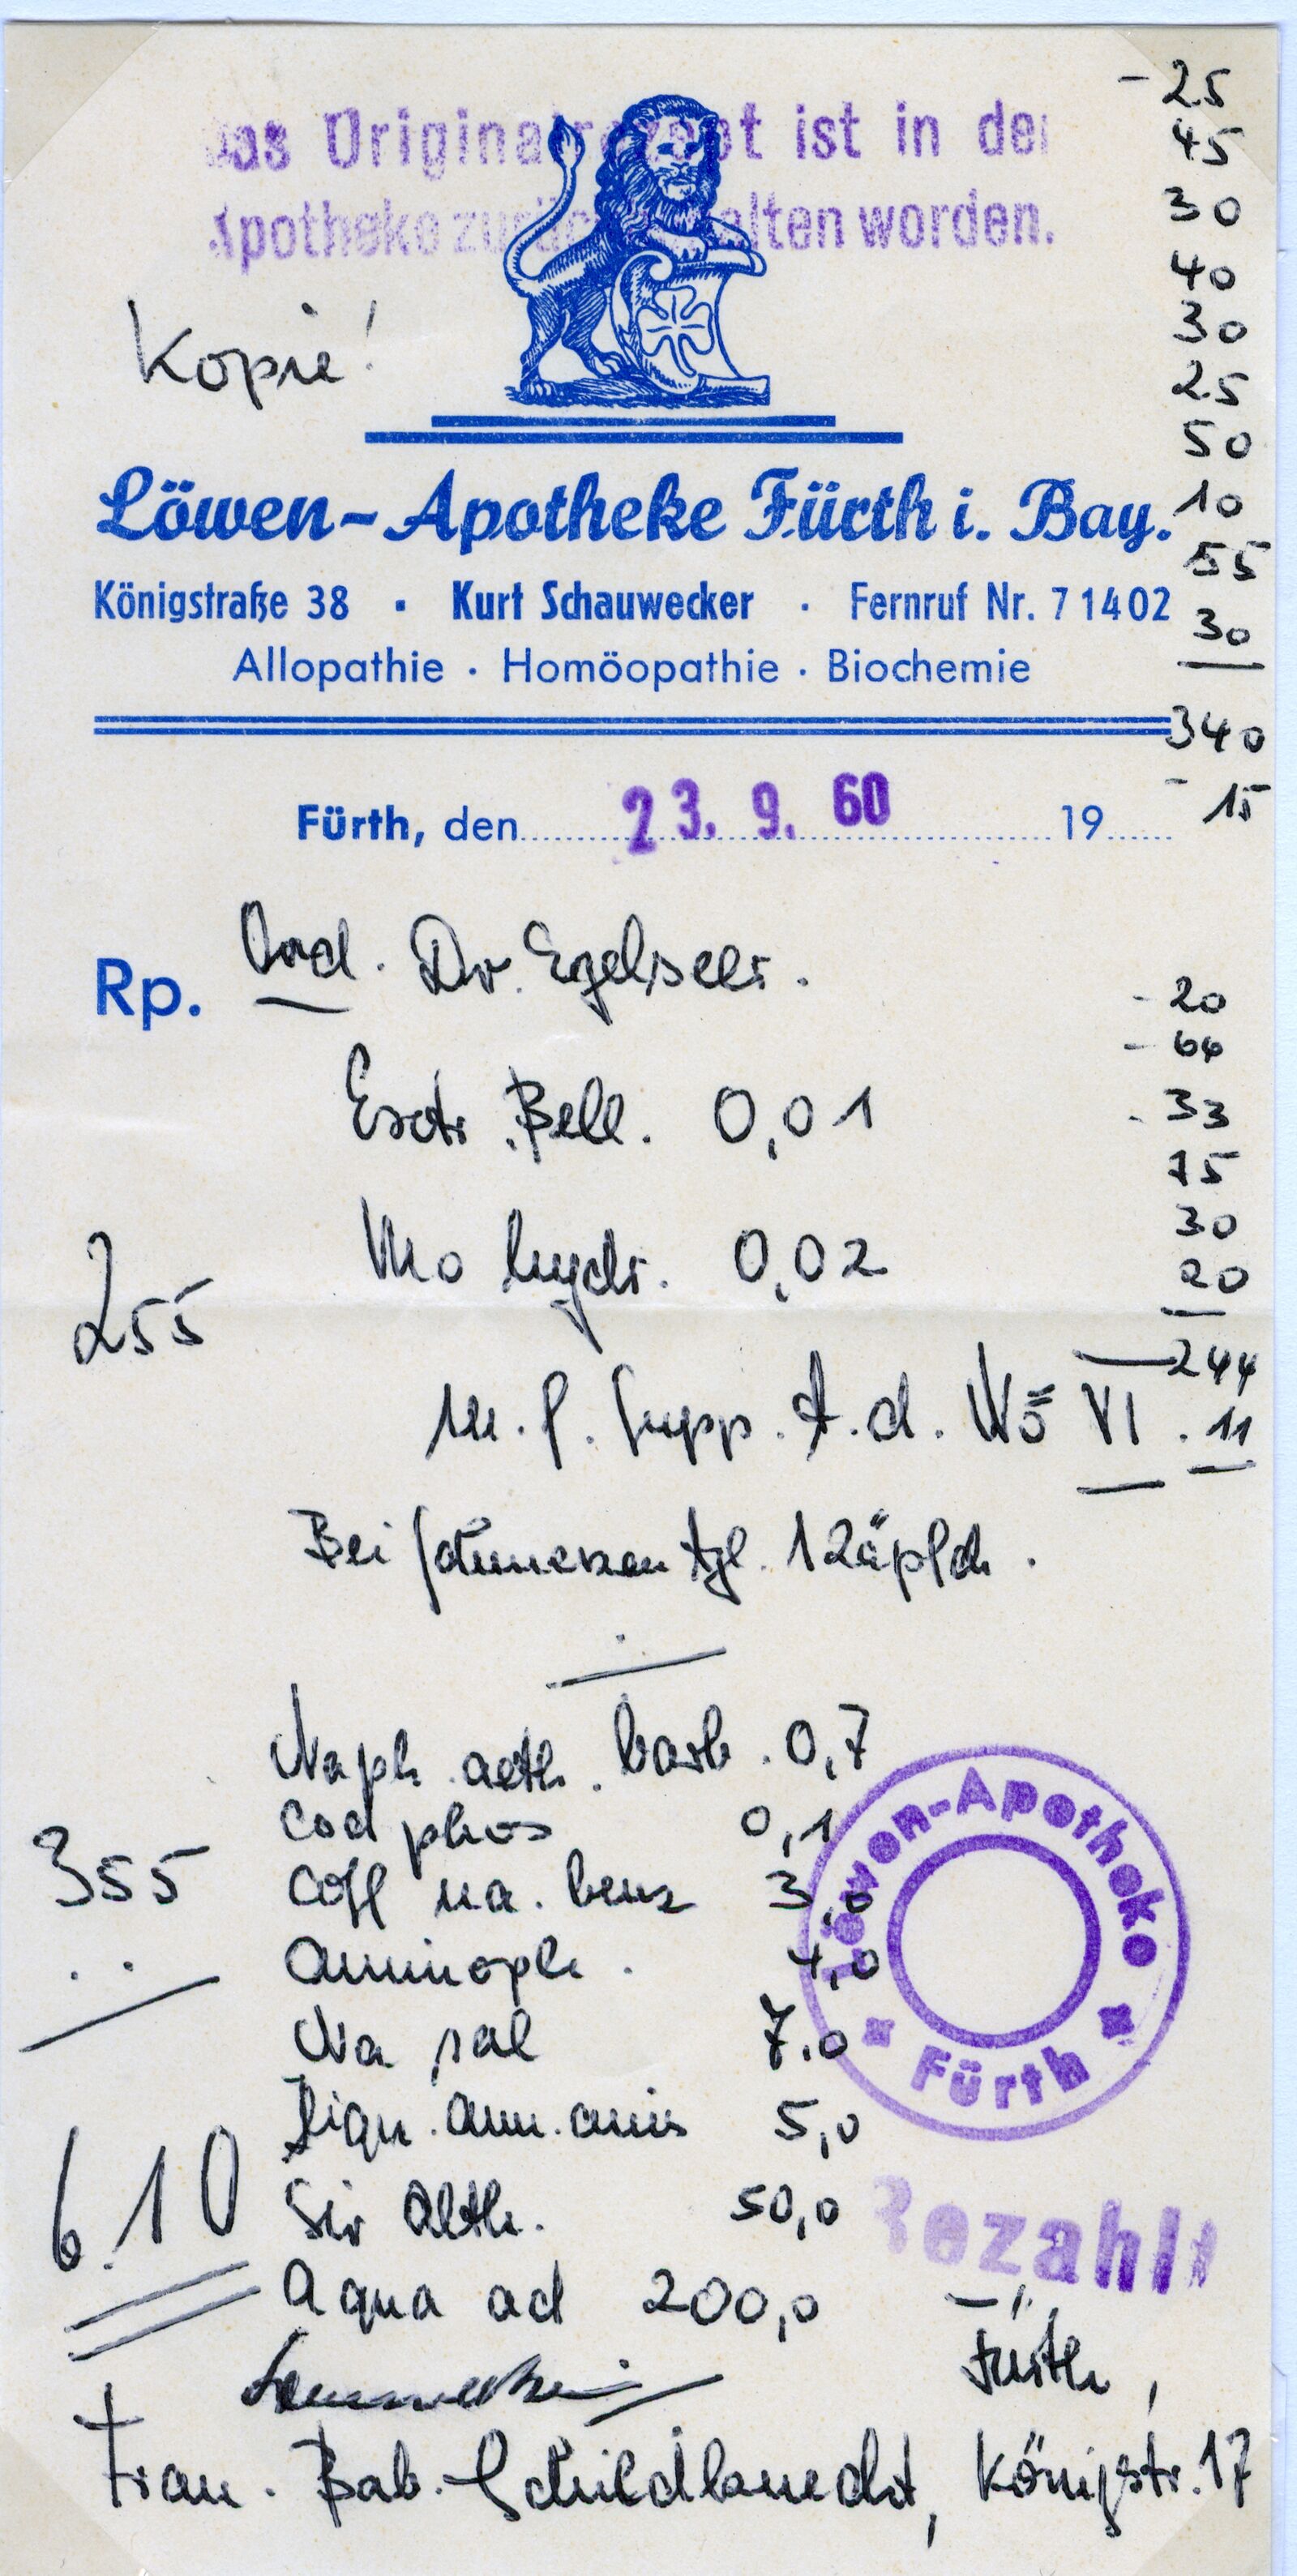 Das Originalrezept ist in der
Apotheke zurückgehalten worden.
Kopie!
- 25
45
30
40
30
25
50
10
55
30
340
- 15
Löwen-Apotheke Fürth i. Bay.
Königstraße 38 · Kurt Schauwecker · Fernruf Nr. 7 14 02
Allopathie · Homöopathie · Biochemie
Fürth, den 23. 9. 60 19
Rp. Ord. Dr. Egelseer.
- 20
- 66
- 33
75
30
20
244
. 11
Extr. Bell. 0,01
Mo hydr. 0,02
255
M. f. Supp. t. d. No VI
Bei Schmerzen tgl. 1 Zäpfch.
Naph. aeth. barb. 0,7
Cod phos 0,1
355
Coff na. benz 3,0
Aminoph. 4,0
Na sal 7.0
Liqu. Amm. anis 5,0
6.10
Sir Alth. 50,0
Aqua ad 200,0
Löwen-Apotheke
Fürth
Bezahlt
Fürth,
Frau. Bab. Schildknecht, Königstr. 17